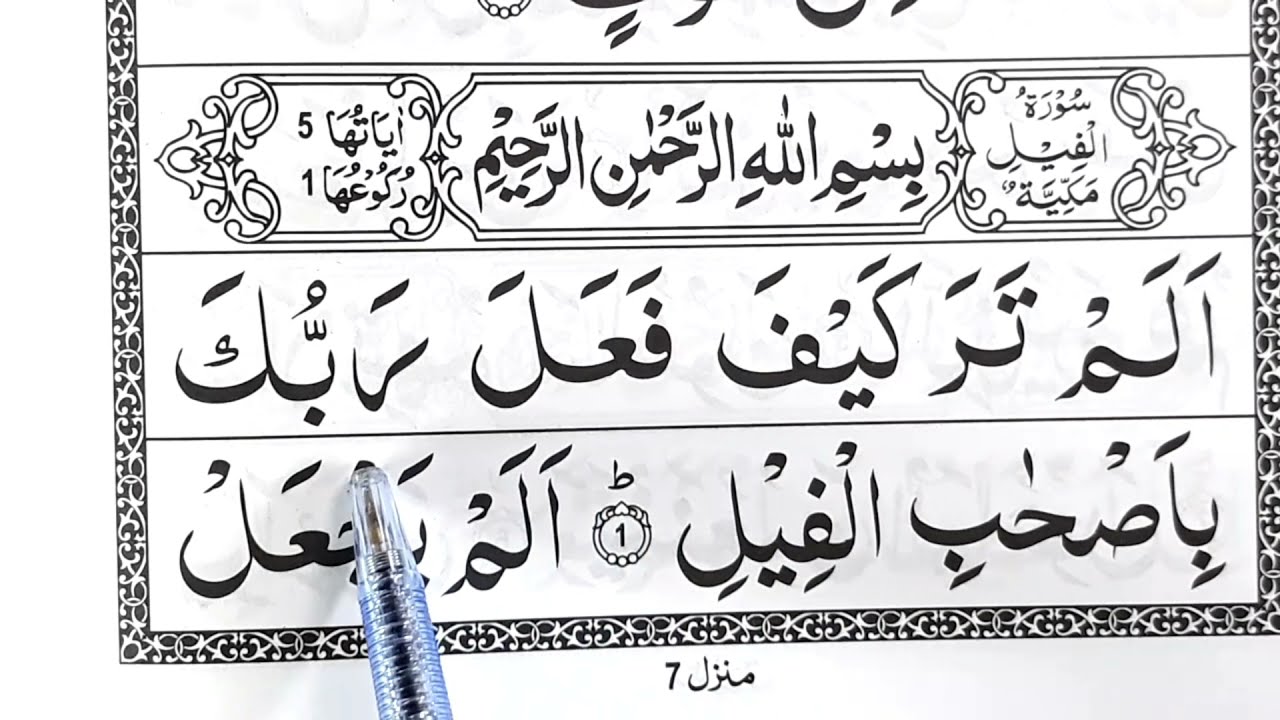 سُوْرَةُ الْفِيْلِ مَكِّيَّةٌ
بِسْمِ اللّٰهِ الرَّحْمٰنِ الرَّحِيْمِ
اٰيَاتُهَا 5
رُكُوْعُهَا 1
اَلَمْ تَرَ كَيْفَ فَعَلَ رَبُّكَ
بِاَصْحٰبِ الْفِيْلِ ؕ 1 اَلَمْ يَجْعَلْ
منزل 7